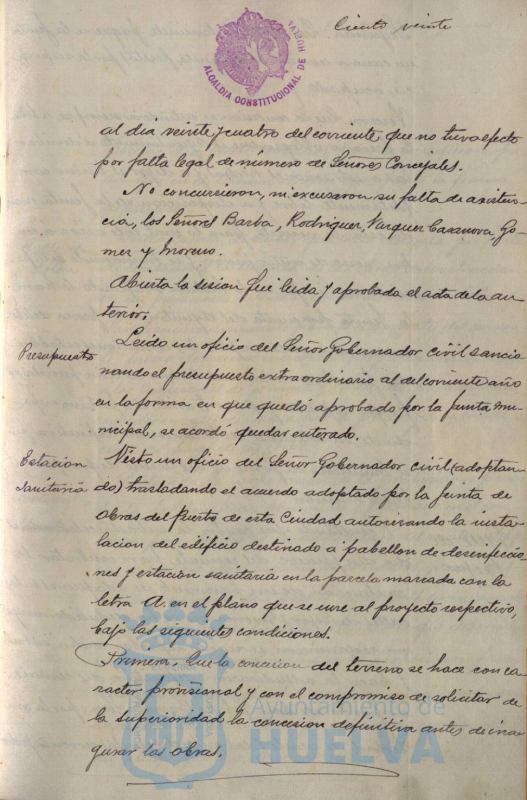 Ciento veinte
ALCALDIA CONSTITUCIONAL DE HUELVA
al dia veinte y cuatro del corriente que no tuvo efecto
por falta legal de número de Señores Concejales.
No concurrieron, ni excusaron su falta de asisten-
cia, los Señores Barba, Rodriguez, Vazquez Casanova, Go-
mez y Moreno.
Abierta la sesion fué leida y aprobada el acta de la an-
terior.
Presupuesto
Leido un oficio del Señor Gobernador civil sancio
nando el presupuesto extraordinario al del corriente año
en la forma en que quedó aprobado por la Junta mu-
nicipal, se acordó quedar enterado.
Estacion
Sanitaria
Visto un oficio del Señor Gobernador civil (adoptan-
do) trasladando el acuerdo adoptado por la Junta de
Obras del Puerto de esta Ciudad autorizando la insta-
lacion del edificio destinado á pabellon de desinfeccio
nes y estacion sanitaria en la parcela marcada con la
letra A. en el plano que se une al proyecto respectivo,
bajo las siguientes condiciones.
Primera. Que la concesion del terreno se hace con ca
racter provisional y con el compromiso de solicitar de
la superioridad la concesion definitiva antes de inau
gurar las obras.
Ayuntamiento de
HUELVA